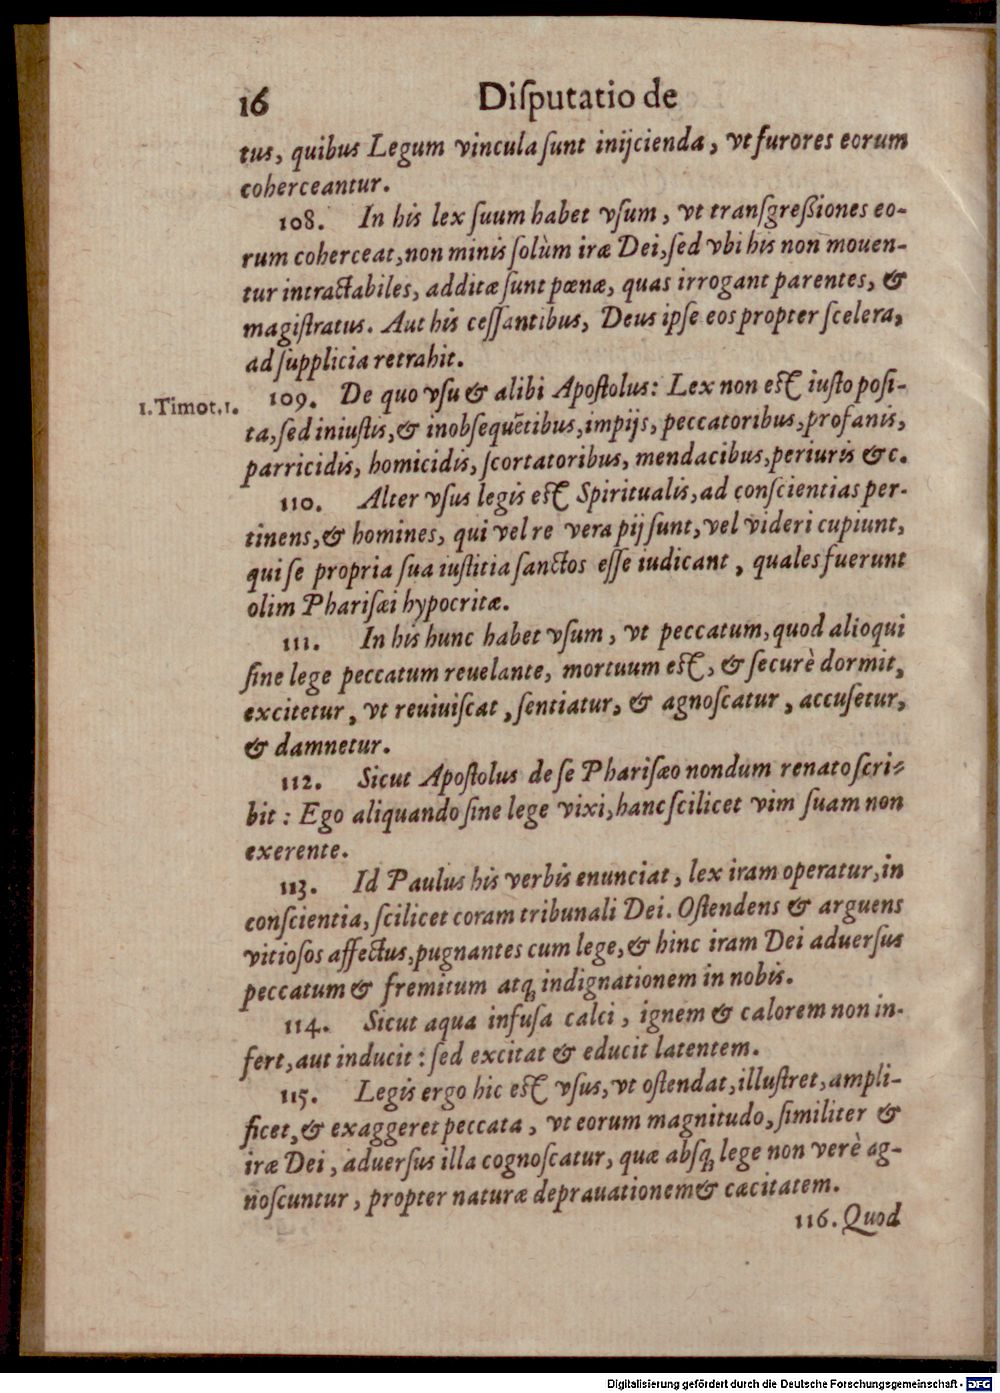 16 Diſputatio de
tus, quibus Legum vincula ſunt inijcienda, vt furores eorum
coherceantur.
108. In his lex ſuum habet vſum, vt tranſgreßiones eo-
rum coherceat, non minis ſolùm iræ Dei, ſed vbi his non mouen-
tur intractabiles, additæ ſunt pœnæ, quas irrogant parentes, &
magiſtratus. Aut his ceſſantibus, Deus ipſe eos propter ſcelera,
ad ſupplicia retrahit.
1. Timot. 1. 109. De quo vſu & alibi Apoſtolus: Lex non eſt iuſto poſi-
ta, ſed iniuſtis, & inobſequẽtibus, impijs, peccatoribus, profanis,
parricidis, homicidis, ſcortatoribus, mendacibus, periuris &c.
110. Alter vſus legis eſt Spiritualis, ad conſcientias per-
tinens, & homines, qui vel re vera pij ſunt, vel videri cupiunt,
qui ſe propria ſua iuſtitia ſanctos eſſe iudicant, quales fuerunt
olim Phariſæi hypocritæ.
111. In his hunc habet vſum, vt peccatum, quod alioqui
ſine lege peccatum reuelante, mortuum eſt, & ſecurè dormit,
excitetur, vt reuiuiſcat, ſentiatur, & agnoſcatur, accuſetur,
& damnetur.
112. Sicut Apoſtolus de ſe Phariſæo nondum renato ſcri-
bit: Ego aliquando ſine lege vixi, hanc ſcilicet vim ſuam non
exerente.
113. Id Paulus his verbis enunciat, lex iram operatur, in
conſcientia, ſcilicet coram tribunali Dei. Oſtendens & arguens
vitioſos affectus, pugnantes cum lege, & hinc iram Dei aduerſus
peccatum & fremitum atq; indignationem in nobis.
114. Sicut aqua infuſa calci, ignem & calorem non in-
fert, aut inducit: ſed excitat & educit latentem.
115. Legis ergo hic eſt vſus, vt oſtendat, illuſtret, ampli-
ficet, & exaggeret peccata, vt eorum magnitudo, ſimiliter &
iræ Dei, aduerſus illa cognoſcatur, quæ abſq; lege non verè ag-
noſcuntur, propter naturæ deprauationem & cæcitatem.
116. Quod
Digitalisierung gefördert durch die Deutsche Forschungsgemeinschaft - DFG